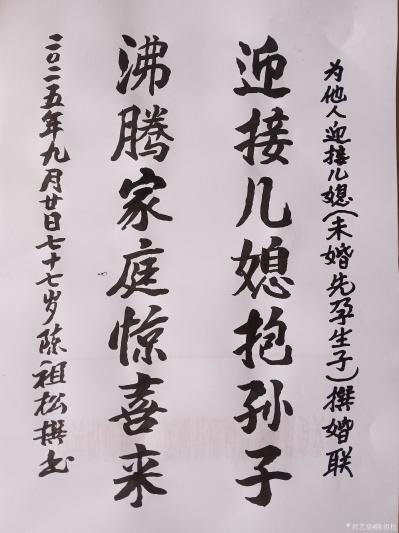 为他人迎接儿媳(未婚先孕生子)撰婚联
迎接儿媳抱孙子
沸腾家庭惊喜来
二〇二五年九月廿日七十七岁陈祖松撰书